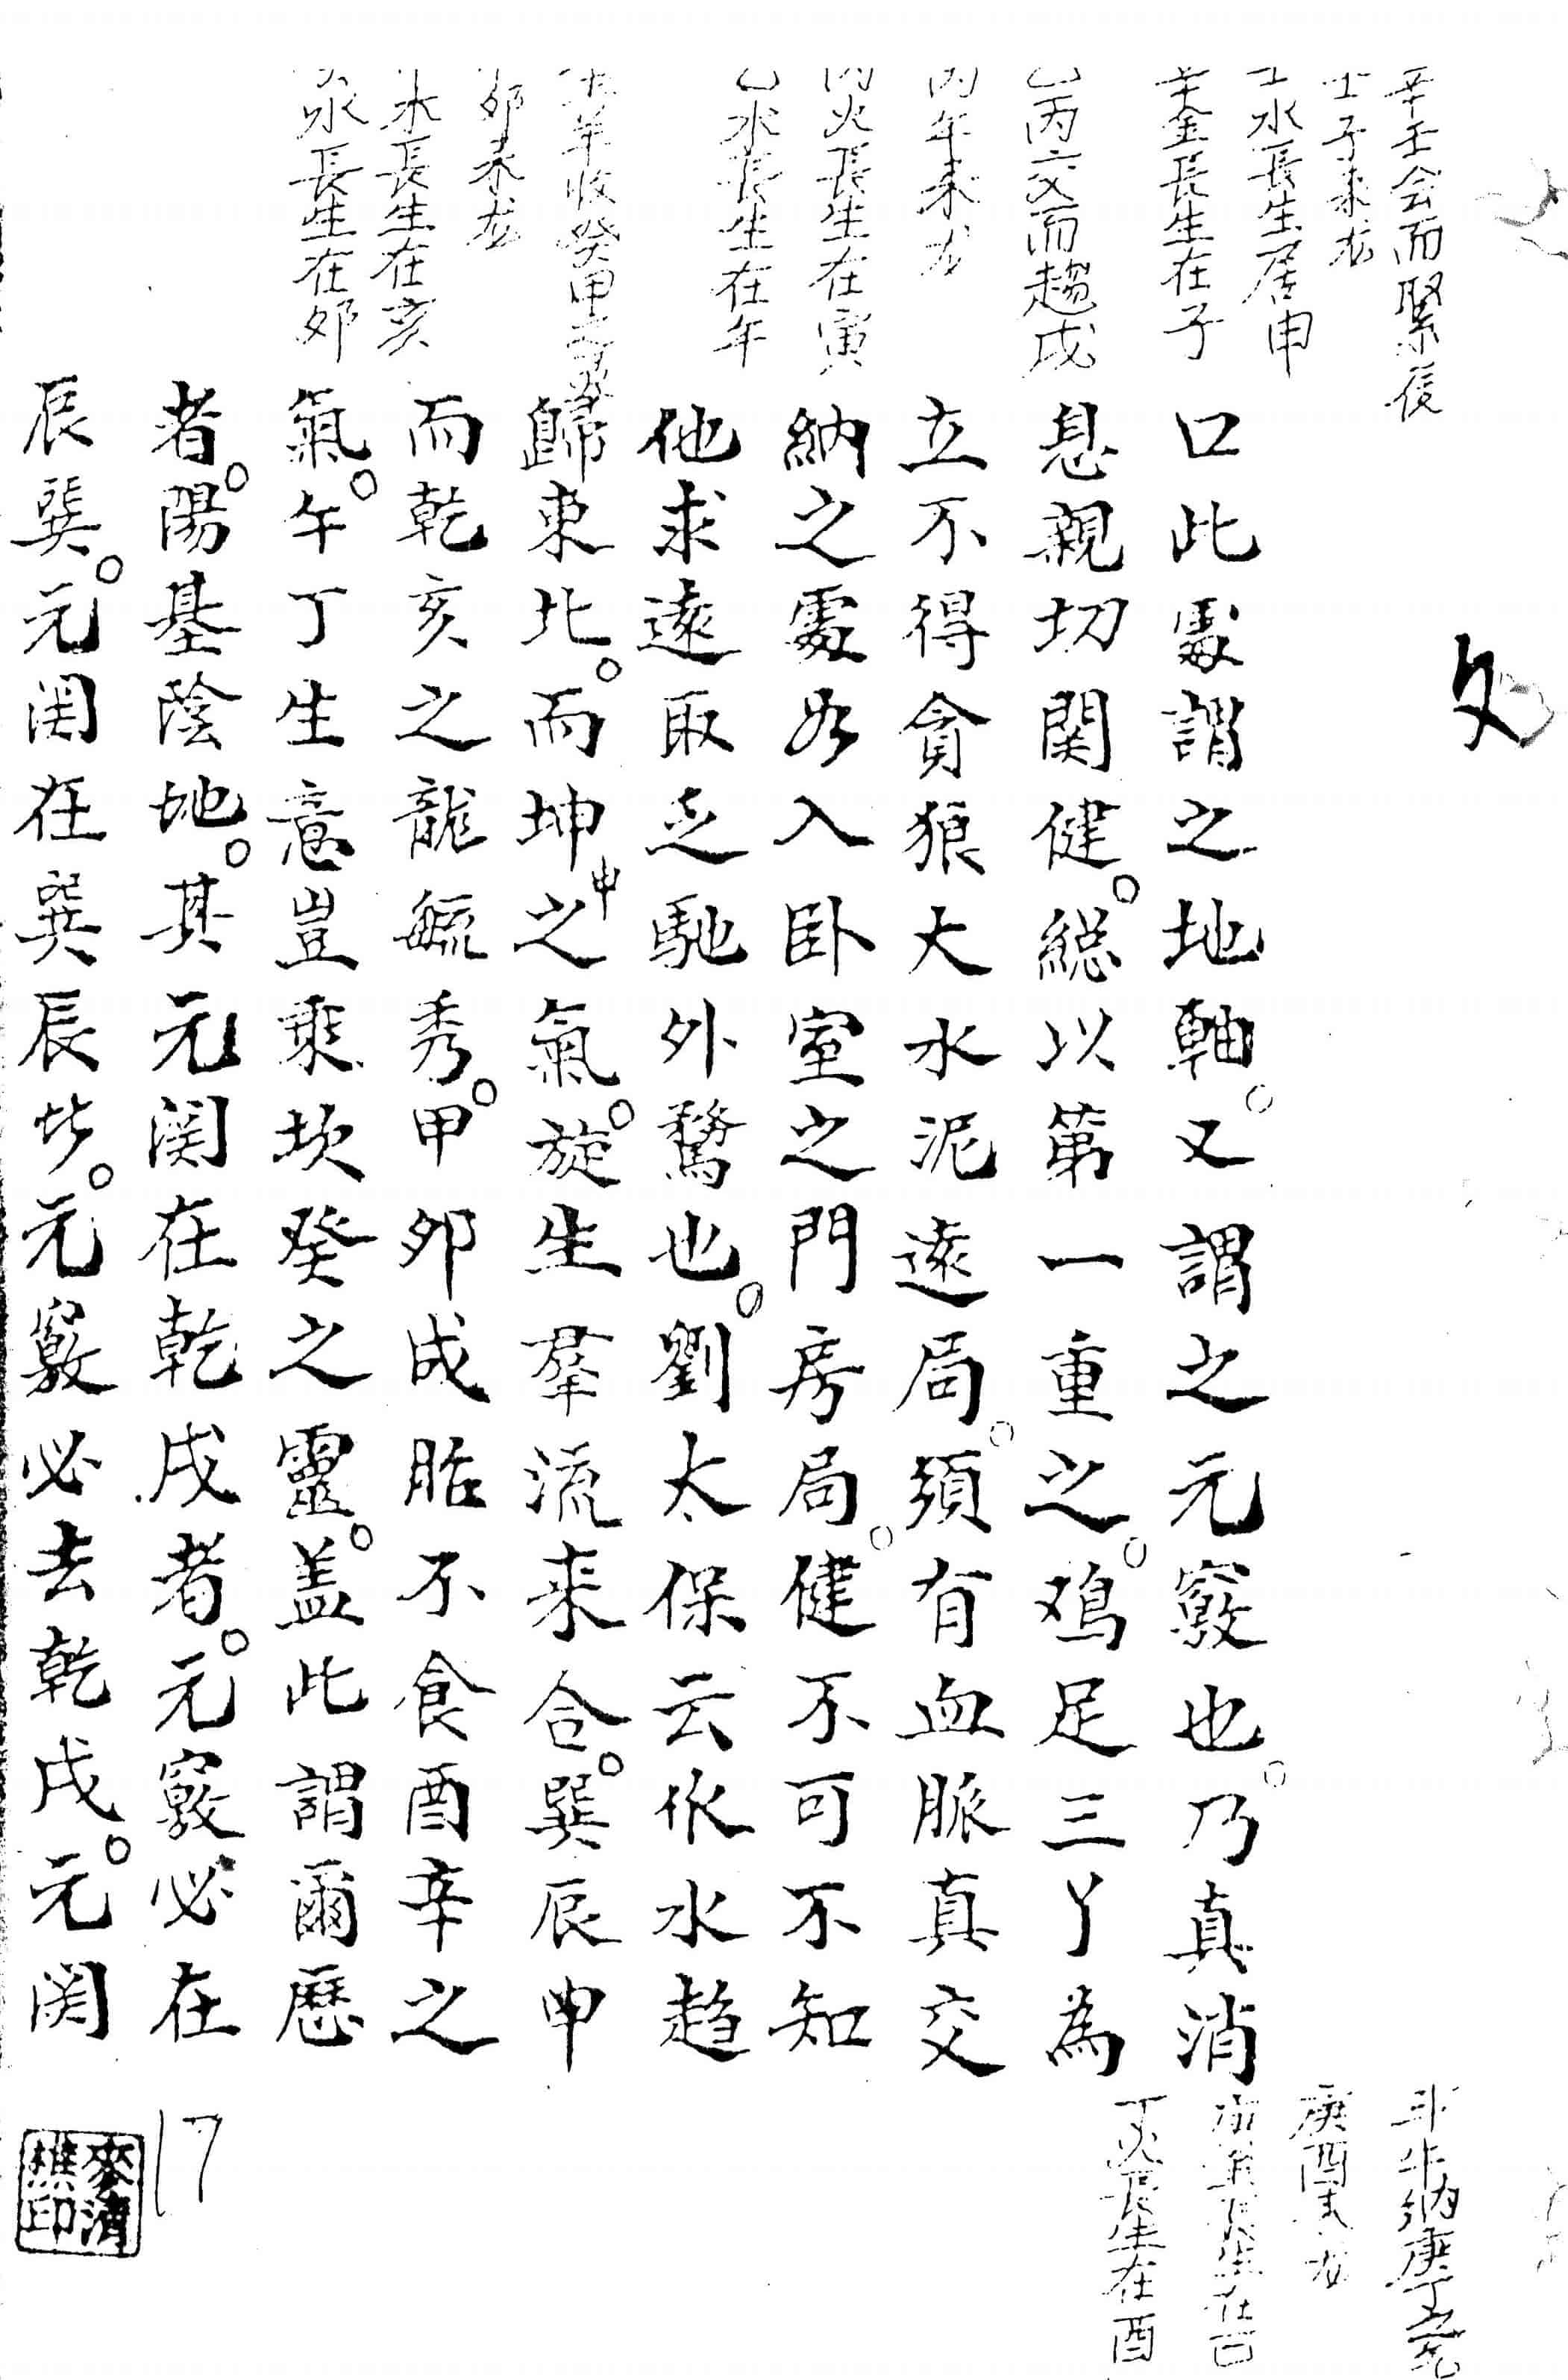 辛壬会而緊後
士子来龙
壬水長生居申
辛金長生在子
乙丙交而趨戌
丙午来龙
丙火長生在寅
乙水長生在午
羊收癸甲之
卯来龙
木長生在亥
水長生在卯
口此處謂之地軸。又謂之元竅也。乃真消
息親切関健。緫以第一重之。鳮足三丫為
立不得貪狼大水泥遠局。須有血脈真交
納之處如入卧室之門房局。健不可不知
他求遠取之馳外騖也。劉太保云依水趋
歸東北。而坤申之氣。旋生羣流来合。巽辰申
而乾亥之龍毓秀。甲卯成胎不食酉辛之
氣。午丁生意豈乘坎癸之靈。盖此謂爾歷
者。陽基陰地。其元関在乾戌者。元竅必在
辰巽。元関在巽辰皆。元竅必去乾戌。元関
斗牛納庚丁之氣
庚酉来龙
金長生在巳
丁火長生在酉
17